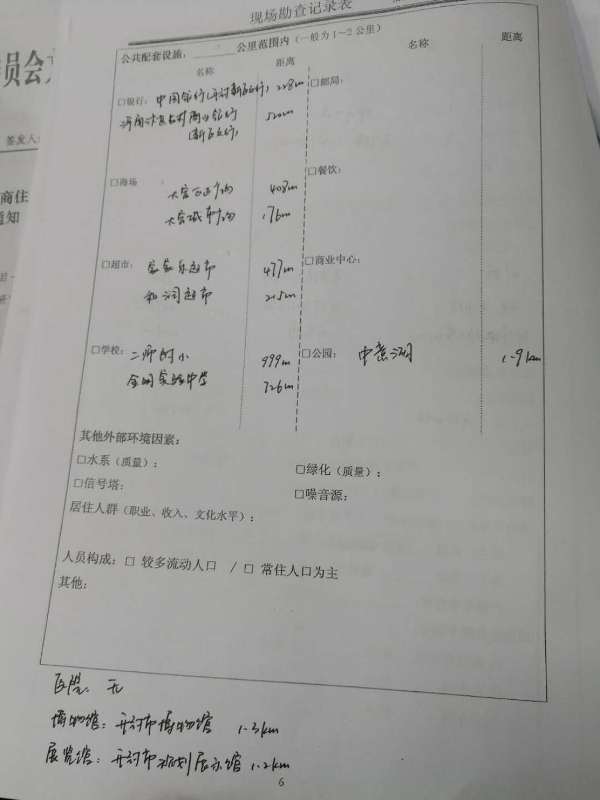 现场勘查记录表
员会
签发人:
商住
通知
公共配套设施：________公里范围内（一般为1~2公里）
名称 距离 名称 距离
□银行：中国银行(开封新区支行) 228m □邮局：
商业银行 520m
(新区支行)
□商场 大宏 广场 408m □餐饮：
大宏城市广场 176m
□超市： 家乐超市 477m □商业中心：
和润超市 215m
□学校：二师附小 999m □公园：中意湖 1.9km
金明实验中学 726m
其他外部环境因素：
□水系（质量）： □绿化（质量）：
□信号塔： □噪音源：
居住人群（职业、收入、文化水平）：
人员构成：□ 较多流动人口 / □ 常住人口为主
其他：
医院：无
博物馆：开封市博物馆 1.3km
展览馆：开封市规划展示馆 1.2km
6